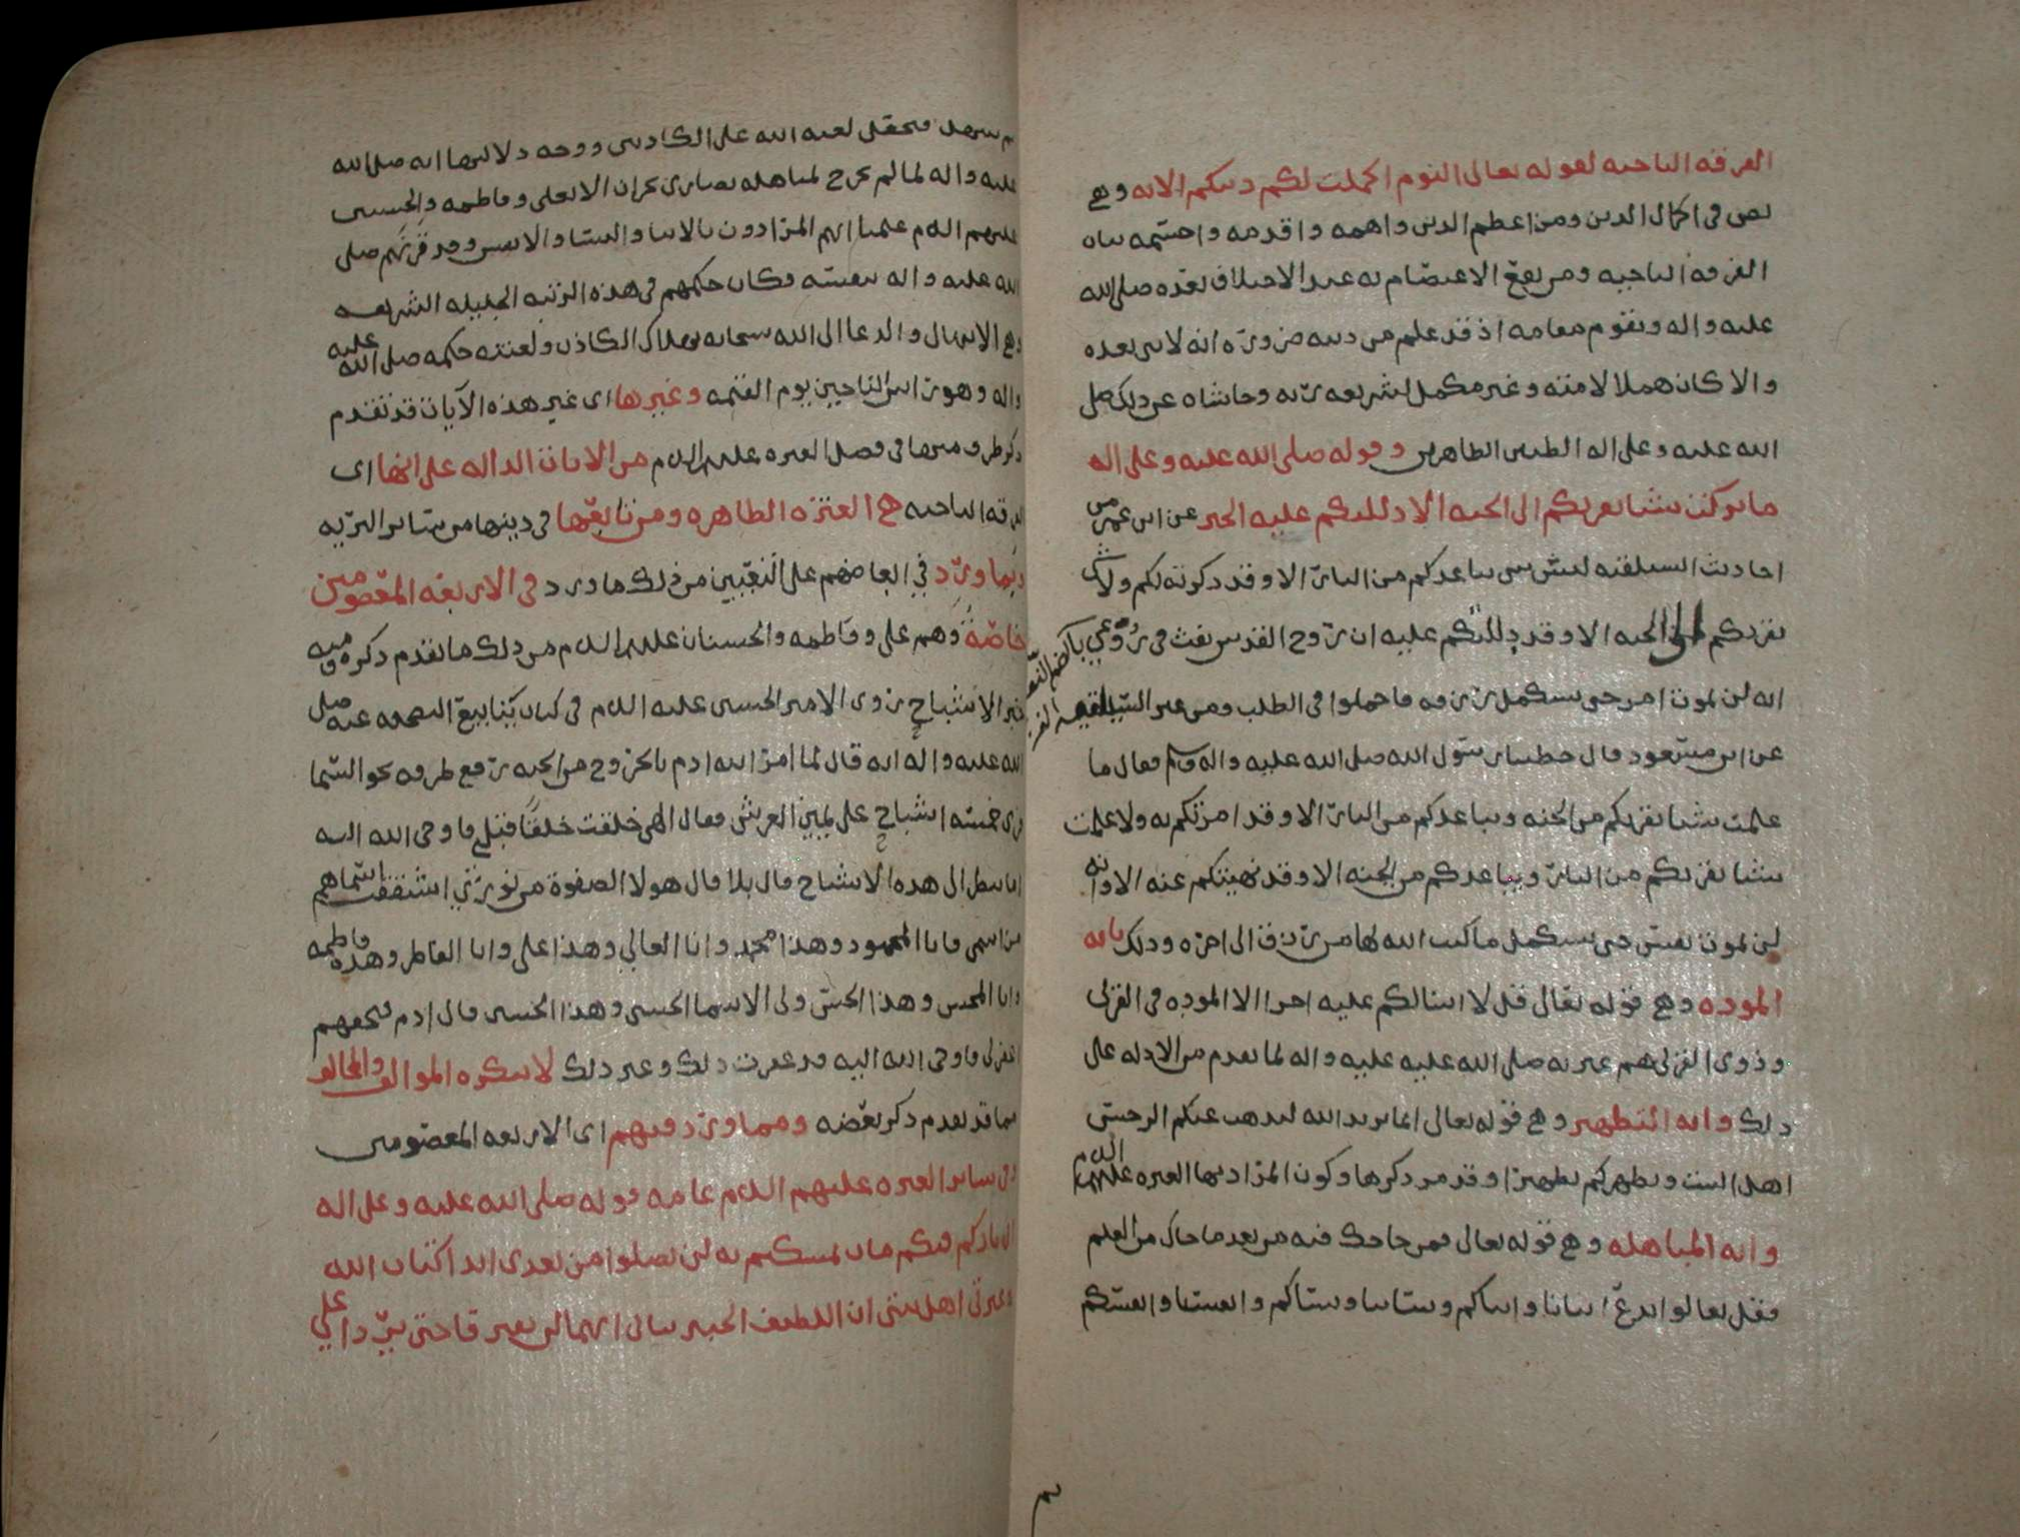 الفرقه الناجيه لقوله تعالى اليوم اكملت لكم دينكم الايه وهي
نص في اكمال الدين ومن اعظم الدين واهمه واقدمه واحتمه بيان
الفرقه الناجيه ومن يقع الاعتصام به عند الاختلاف بعده صلى الله
عليه واله ويقوم مقامه اذ قد علم من دينه ضروره انه لا نبي بعده
والا كان هملا لامته وغير مكمل لشريعه ربه وحاشاه عن ذلك صلى
الله عليه وعلى اله الطيبين الطاهرين وقوله صلى الله عليه وعلى اله
ما تركت شيا يقربكم الى الجنه الا دللتكم عليه الخبر عن ابن عمر من
احاديث السيلقيه ليس شي يباعدكم من النار الا وقد ذكرته لكم ولا شي
يقربكم الى الجنه الا وقد دللتكم عليه ان روح القدس نفث في روعي
انه لن يموت امر حتى يستكمل رزقه فاجملوا في الطلب ومن غير السيلقيه
عن ابن مسعود قال خطبنا رسول الله صلى الله عليه واله وسلم فقال ما
علمت شيا يقربكم من الجنه ويباعدكم من النار الا وقد امرتكم به ولا علمت
شيا يقربكم من النار ويباعدكم من الجنه الا وقد نهيتكم عنه الا وانه
لن تموت نفس حتى تستكمل ما كتب الله لها من رزق الى اخره وذلك بايه
الموده وهي قوله تعالى قل لا اسالكم عليه اجرا الا الموده في القربى
وذوي القربى هم عترته صلى الله عليه عليه واله لما تقدم من الادله على
ذلك وايه التطهير وهي قوله تعالى انما يريد الله ليذهب عنكم الرجس
اهل البيت ويطهركم تطهيرا وقد مر ذكرها وكون المراد بها العتره عليهم السلام
وايه المباهله وهي قوله تعالى فمن حاجك فيه من بعد ما جاك من العلم
فقل تعالوا ندع ابنانا وابناكم ونسانا ونساكم وانفسنا وانفسكم
ثم نبتهل فنجعل لعنه الله على الكاذبين ووجه دلالتها انه صلى الله
عليه واله لما لم يخرج لمباهله نصارى نجران الا بعلي وفاطمه والحسنين
عليهم السلام علمنا انهم المرادون بالابنا والنسا والانفس وقد قرنهم صلى
الله عليه واله بنفسه وكان حكمهم في هذه الرتبه الجليله الشريفه
وهي الابتهال والدعا الى الله سبحانه بهلاك الكاذب ولعنته حكمه صلى الله عليه
واله وهو راس الناجين يوم القيمه وغيرها اي غير هذه الآيات قد تقدم
ذكر طرف منها في فصل العتره عليهم السلام من الايات الداله على انها اي
الفرقه الناجيه هي العتره الطاهره ومن تابعها في دينها من ساير البريه
وبما ورد في ذلك ما ورد في الاربعه المعصومين
خاصة وهم علي وفاطمه والحسنان عليهم السلام من ذلك ما تقدم ذكره ومنه
خبر الاشباح روى الامير الحسين عليه السلام في كتاب ينابيع النصيحه عنه صلى
الله عليه واله انه قال لما امر الله ادم بالخروج من الجنه رفع طرفه نحو السما
فراى خمسه اشباح على يمين العرش فقال الهي خلقت خلقا قبلي فاوحى الله اليه
اما تنظر الى هذه الاشباح قال بلا قال هولا الصفوة من نوري اشتققت اسماهم
من اسمي فانا المحمود وهذا محمد وانا العالي وهذا علي وانا الفاطر وهذه فاطمه
وانا المحسن وهذا الحسن ولي الاسما الحسنى وهذا الحسين قال ادم فبحقهم
اغفر لي فاوحى الله اليه قد غفرت ذلك وغير ذلك لا ينكره الموالف والمخالف
مما قد تقدم ذكر بعضه ومما ورد فيهم اي الاربعه المعصومين
وفي ساير العتره عليهم السلام عامه قوله صلى الله عليه وعلى اله
اني تارك فيكم ما ان تمسكتم به لن تضلوا من بعدي ابدا كتاب الله
وعترتي اهل بيتي ان اللطيف الخبير نباني انهما لن يفترقا حتى يردا علي